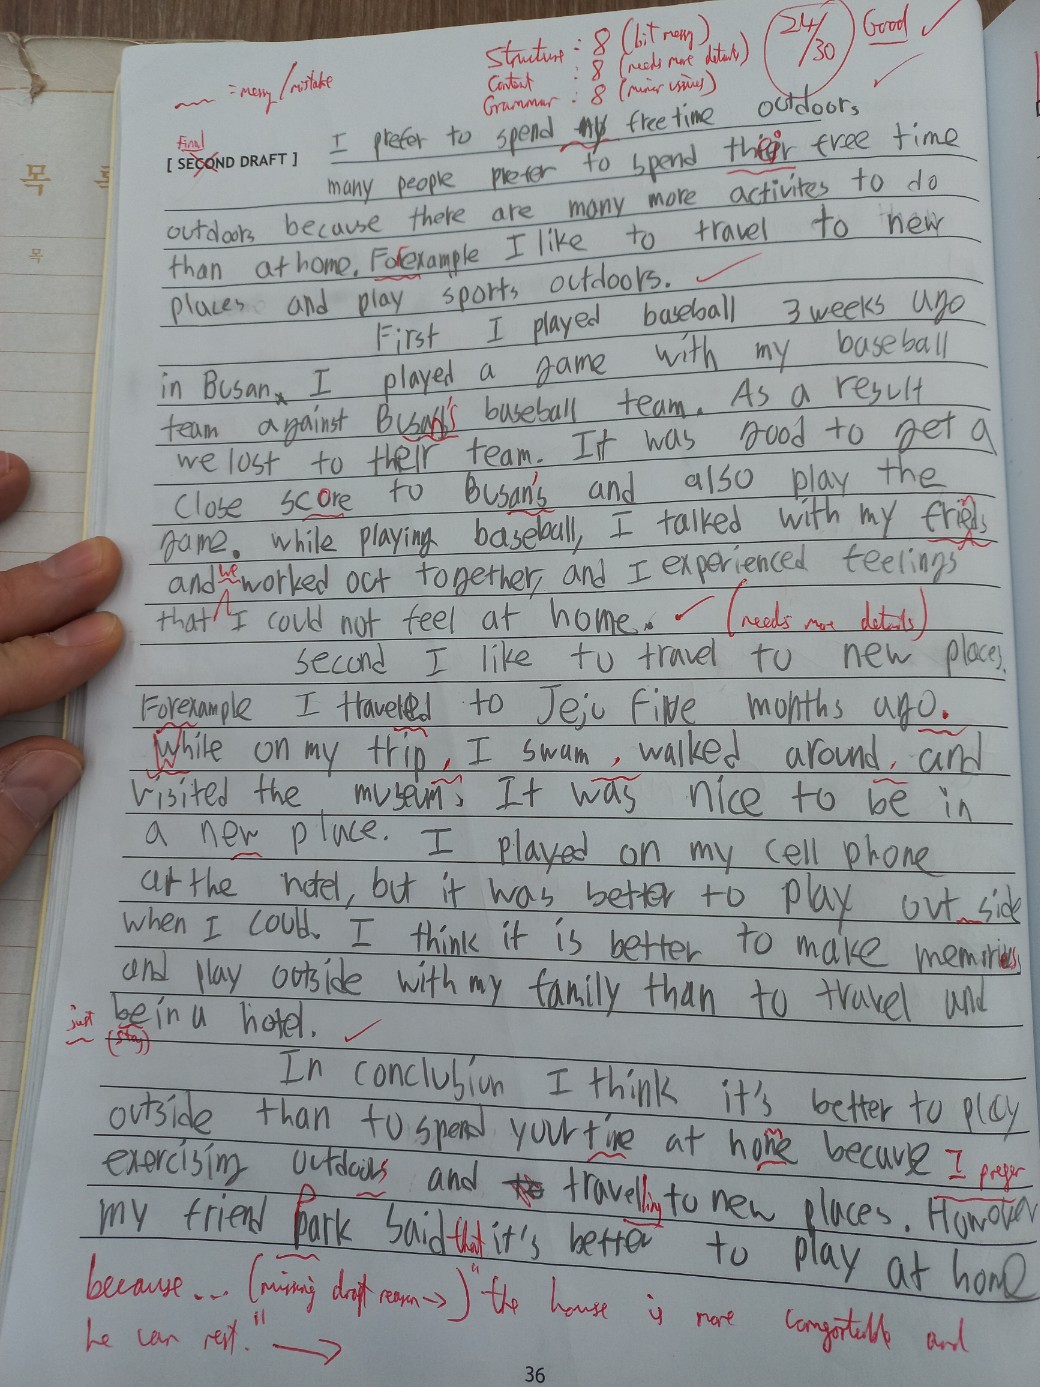 Structure : 8 (bit messy)
Content : 8 (needs more details)
Grammar : 8 (minor issues)
24/30
Good
= messy/mistake
Final
[ SECOND DRAFT ]
I prefer to spend my free time outdoors
many people prefer to spend their free time
outdoors because there are many more activites to do
than at home. Forexample I like to travel to new
places and play sports outdoors.
First I played baseball 3 weeks ago
in Busan. I played a game with my baseball
team against Busan's baseball team. As a result
we lost to their team. It was good to get a
close score to Busan's and also play the
game. while playing baseball, I talked with my frieds
and we worked out together, and I experienced feelings
that I could not feel at home. (needs more details)
second I like to travel to new places.
Forexample I traveled to Jeju five months ago.
While on my trip, I swam, walked around, and
visited the museum. It was nice to be in
a new place. I played on my cell phone
at the hotel, but it was better to play out side
when I could. I think it is better to make memories
and play outside with my family than to travel and
just be in a hotel.
(stay)
In conclusion I think it's better to play
outside than to spend your time at home because I prefer
exercising outdoors and travelling to new places. However
my friend Park said that it's better to play at home
because... (missing draft reason→) "the house is more comfortable and
he can rest."
36
목
목